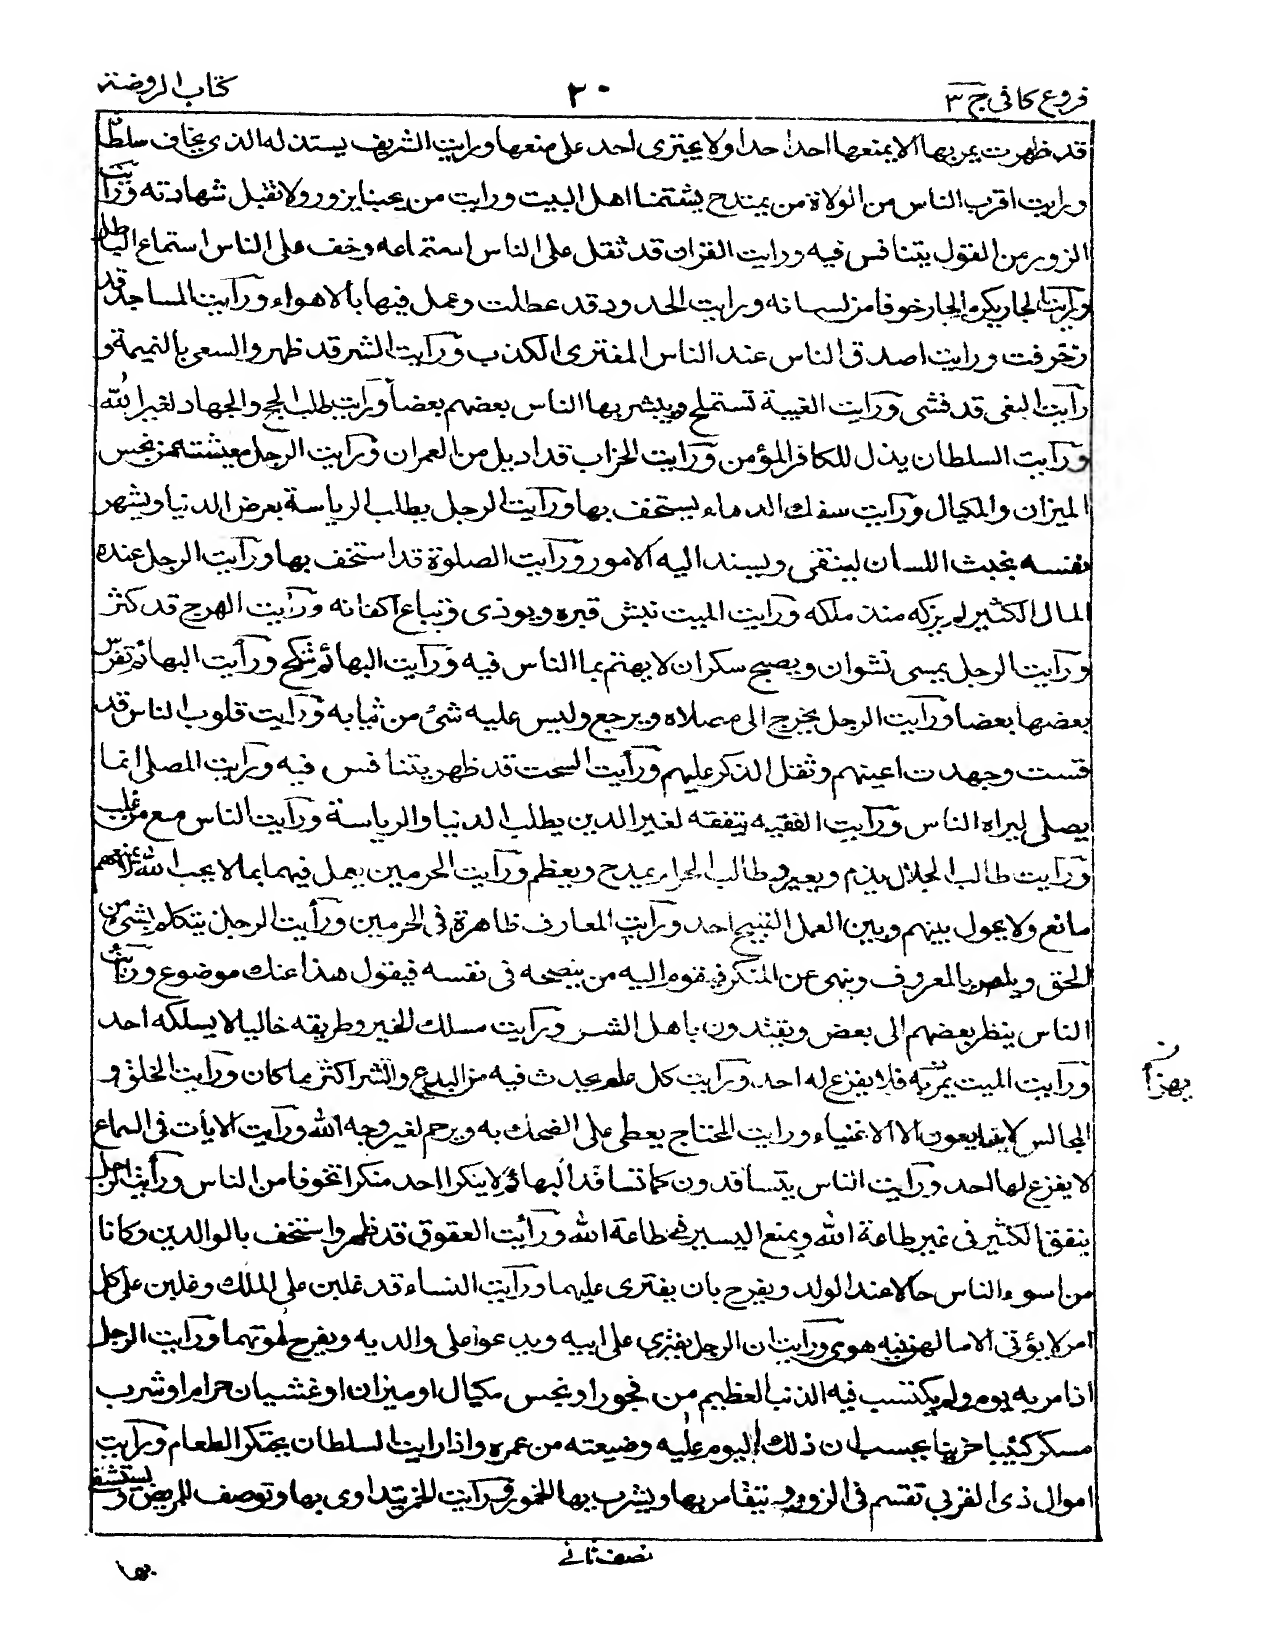 فروع كافى ج ٣
٢٠
كتاب الروضة
قد ظهرت يمر بها لا يمنعها احد احدا ولا يجترى احد على منعها ورايت الشريف يستذله الذى يخاف سلطانه
ورايت اقرب الناس من الولاة من يمتدح بشتمنا اهل البيت ورايت من يحبنا يزور ولا تقبل شهادته ورأيت
الزور من القول يتنافس فيه ورايت القران قد ثقل على الناس استماعه وخف على الناس استماع الباطل
ورأيت الجار يكرم الجار خوفا من لسانه ورايت الحدود قد عطلت وعمل فيها بالاهواء ورأيت المساجد قد
زخرفت ورايت اصدق الناس عند الناس المفترى الكذب ورأيت الشر قد ظهر والسعى بالنميمة و
رأيت البغى قد فشى ورأيت الغيبة تستملح ويبشر بها الناس بعضهم بعضا ورأيت طلب الحج والجهاد لغير الله
ورأيت السلطان يذل للكافر المؤمن ورأيت الخراب قد اديل من العمران ورأيت الرجل معيشته من بخس
الميزان والمكيال ورأيت سفك الدماء يستخف بها ورأيت الرجل يطلب الرياسة بعرض الدنيا ويشهر
نفسه بخبث اللسان ليتقى ويسند اليه الامور ورأيت الصلوة قد استخف بها ورأيت الرجل عنده
المال الكثير لم يزكه منذ ملكه ورايت الميت نبش قبره ويوذى وتباع اكفانه ورأيت الهرج قد كثر
ورأيت الرجل يمسى نشوان ويصبح سكران لا يهتم بما الناس فيه ورأيت البهائم تنكح ورأيت البهائم تفرس
بعضها بعضا ورأيت الرجل يخرج الى مصلاه ويرجع وليس عليه شئ من ثيابه ورأيت قلوب الناس قد
قست وجهدت اعينهم وثقل الذكر عليهم ورأيت السحت قد ظهر يتنافس فيه ورايت المصلى انما
يصلى ليراه الناس ورأيت الفقيه يتفقه لغير الدين يطلب الدنيا والرياسة ورأيت الناس مع من غلب
ورأيت طالب الحلال يذم ويعير وطالب الحرام يمدح ويعظم ورأيت الحرمين يعمل فيهما بما لا يحب الله لا يمنعهم
مانع ولا يحول بينهم وبين العمل القبيح احد ورأيت المعازف ظاهرة فى الحرمين ورأيت الرجل يتكلم بشئ من
الحق ويامر بالمعروف وينهى عن المنكر فيقوم اليه من ينصحه فى نفسه فيقول هذا عنك موضوع ورأيت
الناس ينظر بعضهم الى بعض ويقتدون باهل الشر ورأيت مسلك الخير وطريقه خاليا لا يسلكه احد
ورأيت الميت يمر به فلا يفزع له احد ورأيت كل عام يحدث فيه من البدع والشر اكثر مما كان ورايت الخلق و
يهزأ
المجالس لا يتابعون الا الاغنياء ورايت المحتاج يعطى على الضحك به ويرحم لغير وجه الله ورأيت الايات فى السماء
لا يفزع لها احد ورأيت الناس يتسافدون كما تسافد البهائم لا ينكر احد منكرا تخوفا من الناس ورأيت الرجل
ينفق الكثير فى غير طاعة الله ويمنع اليسير فى طاعة الله ورأيت العقوق قد ظهر واستخف بالوالدين وكانا
من اسوء الناس حالا عند الولد ويفرح بان يفترى عليهما ورأيت النساء قد غلبن على الملك وغلبن على كل
امر لا يؤتى الا ما لهن فيه هوى ورأيت ابن الرجل يفترى على ابيه ويدعوا على والديه ويفرح بموتهما ورأيت الرجل
اذا مر به يوم ولم يكتسب فيه الذنب العظيم من فجور او بخس مكيال او ميزان او غشيان حرام او شرب
مسكر كئيبا حزينا يحسب ان ذلك اليوم عليه وضيعته من عمره واذا رايت السلطان يحتكر الطعام ورأيت
اموال ذى القربى تقسم فى الزور ويتقامر بها ويشرب بها الخمور ورأيت الخمر يتداوى بها وتوصف للمريض ويستشفى
نصف ثانى
بها